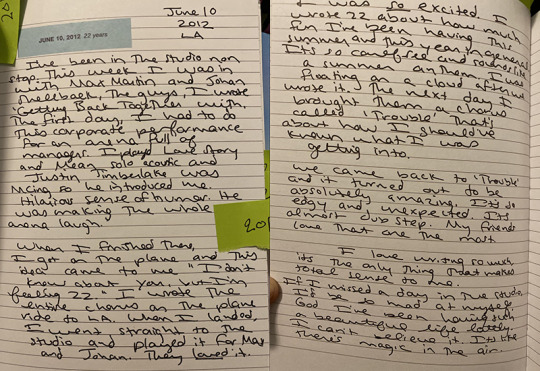 June 10
2012
LA
JUNE 10, 2012 22 years
I've been in the studio non
stop. This week I was in
with Max Martin and Johan
Shellback, the guys I wrote
Getting Back Together with.
The first day, I had to do
this corporate performance
for an arena full of
managers. I played Love Story
and Mean solo acoustic and
Justin Timberlake was
MCing so he introduced me.
Hilarious sense of humor. He
was making the whole
arena laugh.
201
When I finished then,
I got on the plane and this
idea came to me "I don't
know about you, but I'm
feeling 22." I wrote the
entire chorus on the plane
ride to LA. When I landed,
I went straight to the
studio and played it for Max
and Johan. They loved it.
I was so excited I
wrote 22 about how much
fun I've been having this
summer and this year in general.
It's so carefree and sounds like
a summer anthem. I was
floating on a cloud after we
wrote it. The next day I
brought them a chorus
called 'Trouble' that's
about how I should've
known what I was
getting into.
We came back to 'Trouble'
and it turned out to be
absolutely amazing. It's so
edgy and unexpected. It's
almost dub step. My friends
love that one the most
I love writing so much
it's the only thing that makes
total sense to me.
If I missed a day in the studio,
I'd be so mad at myself.
God I've been having such
a beautiful life lately.
I can't believe it. It's like
there's magic in the air.